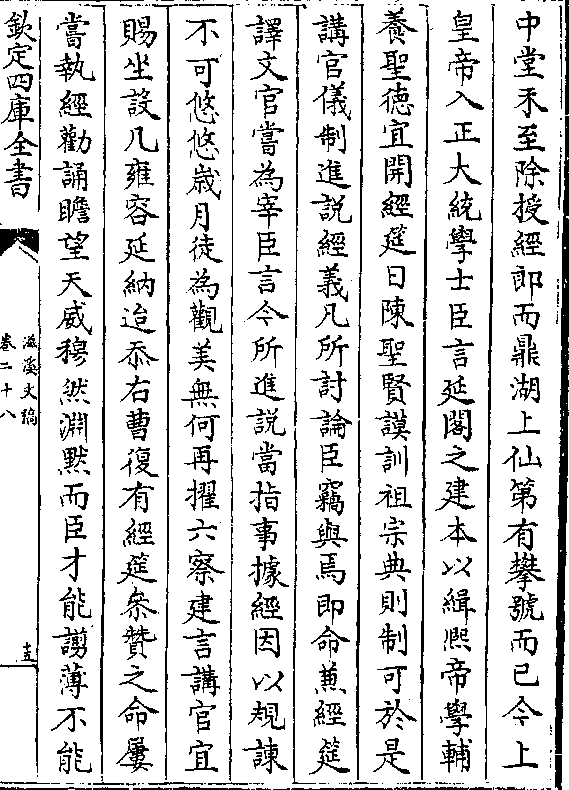 中堂禾至除授經郎而鼎湖上仙第有攀號而已今上
皇帝入正大統學士臣言延閣之建本以緝熙帝學輔
養聖德宜開經筵日陳聖賢謨訓祖宗典則制可於是
講官儀制進說經義凡所討論臣竊與焉即命兼經筵
譯文官嘗為宰臣言今所進說當指事據經因以規諫
不可悠悠歲月徒為觀美無何再擢六察建言講官宜
賜坐設几雍容延納迨忝右曹復有經筵叅贊之命屢
嘗執經勸誦瞻望天威穆然淵默而臣才能謭薄不能
欽定四庫全書
滋溪文稿
卷二十八
十五